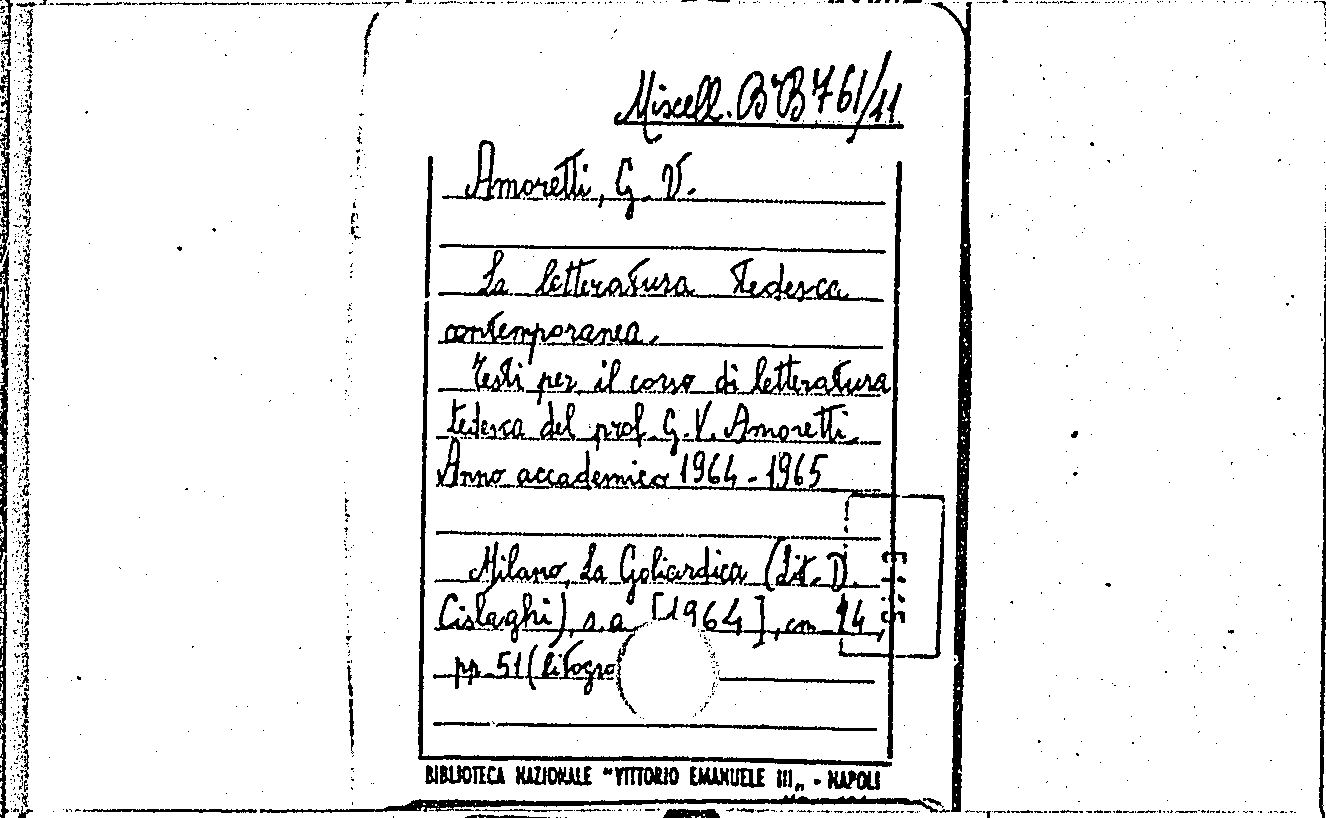 Miscell. BB 761/11
Amoretti, G. V.
La letteratura tedesca
contemporanea.
Testi per il corso di letteratura
tedesca del prof. G. V. Amoretti.
Anno accademico 1964-1965
Milano, La Goliardica (Lit. D.
Cislaghi), s.a. [1964], cm 24,
pp. 51 (litogro
BIBLIOTECA NAZIONALE "VITTORIO EMANUELE III„ - NAPOLI